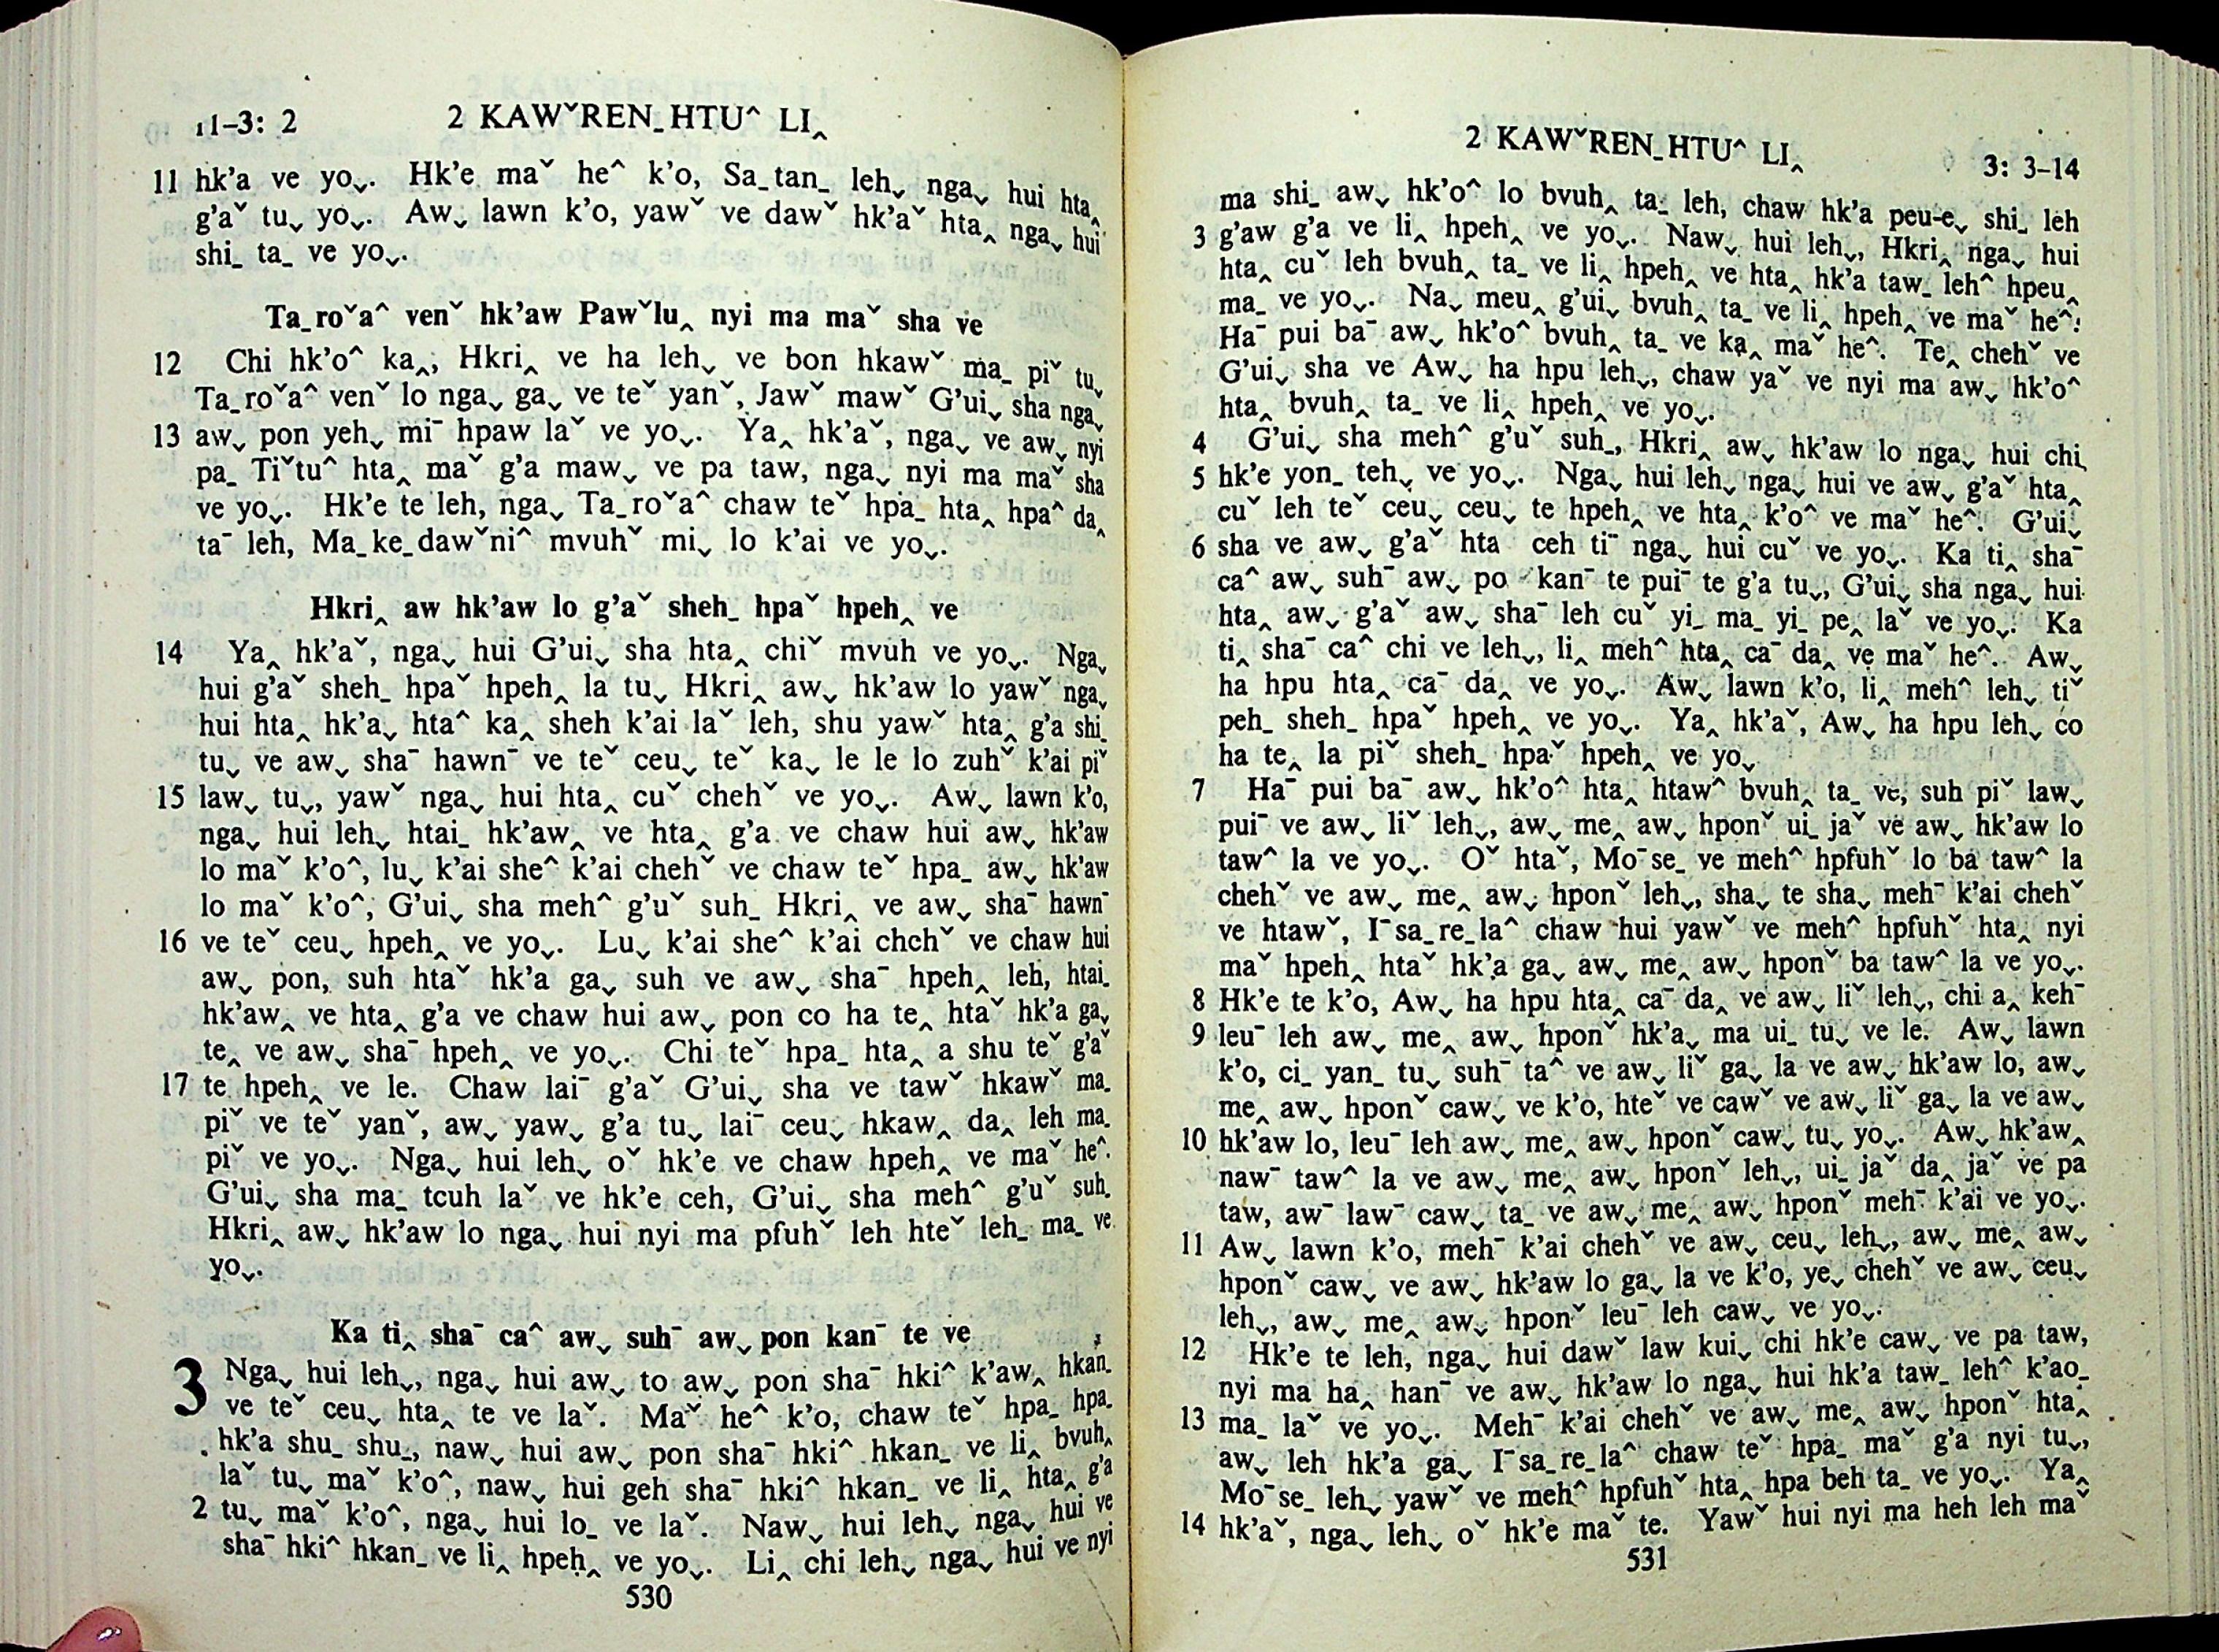 11–3: 2 2 KAWˇREN_HTU^ LI‸
11 hk'a ve yo⌄. Hk'e maˇ he^ k'o, Sa_tan_ leh⌄ nga⌄ hui hta‸
g'aˇ tu⌄ yo⌄. Aw⌄ lawn k'o, yawˇ ve dawˇ hk'aˇ hta‸ nga⌄ hui
shi_ ta_ ve yo⌄.
Ta_roˇa^ venˇ hk'aw Pawˇlu‸ nyi ma maˇ sha ve
12 Chi hk'o^ ka‸, Hkri‸ ve ha leh⌄ ve bon hkawˇ ma_ piˇ tu⌄
Ta_roˇa^ venˇ lo nga⌄ ga⌄ ve teˇ yanˇ, Jawˇ mawˇ G'ui⌄ sha nga⌄
13 aw⌄ pon yeh⌄ miˉ hpaw laˇ ve yo⌄. Ya‸ hk'aˇ, nga⌄ ve aw⌄ nyi
pa_ Tiˇtu^ hta‸ maˇ g'a maw⌄ ve pa taw, nga⌄ nyi ma maˇ sha
ve yo⌄. Hk'e te leh, nga⌄ Ta_roˇa^ chaw teˇ hpa_ hta‸ hpa^ da‸
taˉ leh, Ma_ke_dawˇni^ mvuhˇ mi⌄ lo k'ai ve yo⌄.
Hkri‸ aw hk'aw lo g'aˇ sheh_ hpaˇ hpeh‸ ve
14 Ya‸ hk'aˇ, nga⌄ hui G'ui⌄ sha hta‸ chiˇ mvuh ve yo⌄. Nga⌄
hui g'aˇ sheh_ hpaˇ hpeh‸ la tu⌄ Hkri‸ aw⌄ hk'aw lo yawˇ nga⌄
hui hta‸ hk'a⌄ hta^ ka‸ sheh k'ai laˇ leh, shu yawˇ hta‸ g'a shi_
tu⌄ ve aw⌄ shaˉ hawnˉ ve teˇ ceu⌄ teˇ ka⌄ le le lo zuhˇ k'ai piˇ
15 law⌄ tu⌄, yawˇ nga⌄ hui hta‸ cuˇ chehˇ ve yo⌄. Aw⌄ lawn k'o,
nga⌄ hui leh⌄ htai_ hk'aw‸ ve hta‸ g'a ve chaw hui aw⌄ hk'aw
lo maˇ k'o^, lu⌄ k'ai she^ k'ai chehˇ ve chaw teˇ hpa_ aw⌄ hk'aw
lo maˇ k'o^, G'ui⌄ sha meh^ g'uˇ suh_ Hkri‸ ve aw⌄ shaˉ hawnˉ
16 ve teˇ ceu⌄ hpeh‸ ve yo⌄. Lu⌄ k'ai she^ k'ai chchˇ ve chaw hui
aw⌄ pon, suh htaˇ hk'a ga⌄ suh ve aw⌄ shaˉ hpeh‸ leh, htai_
hk'aw‸ ve hta‸ g'a ve chaw hui aw⌄ pon co ha te‸ htaˇ hk'a ga⌄
te‸ ve aw⌄ shaˉ hpeh‸ ve yo⌄. Chi teˇ hpa_ hta‸ a shu teˇ g'aˇ
17 te hpeh‸ ve le. Chaw laiˉ g'aˇ G'ui⌄ sha ve tawˇ hkawˇ ma_
piˇ ve teˇ yanˇ, aw⌄ yaw⌄ g'a tu⌄ laiˉ ceu⌄ hkaw‸ da‸ leh ma_
piˇ ve yo⌄. Nga⌄ hui leh⌄ oˇ hk'e ve chaw hpeh‸ ve maˇ he^.
G'ui⌄ sha ma_ tcuh laˇ ve hk'e ceh, G'ui⌄ sha meh^ g'uˇ suh_
Hkri‸ aw⌄ hk'aw lo nga⌄ hui nyi ma pfuhˇ leh hteˇ leh_ ma_ ve
yo⌄.
Ka ti‸ shaˉ ca^ aw⌄ suhˉ aw⌄ pon kanˉ te ve
3 Nga⌄ hui leh⌄, nga⌄ hui aw⌄ to aw⌄ pon shaˉ hki^ k'aw‸ hkan_
ve teˇ ceu⌄ hta‸ te ve laˇ. Maˇ he^ k'o, chaw teˇ hpa_ hpa_
hk'a shu_ shu_, naw⌄ hui aw⌄ pon shaˉ hki^ hkan_ ve li‸ bvuh‸
laˇ tu⌄ maˇ k'o^, naw⌄ hui geh shaˉ hki^ hkan_ ve li‸ hta‸ g'a
2 tu⌄ maˇ k'o^, nga⌄ hui lo_ ve laˇ. Naw⌄ hui leh⌄ nga⌄ hui ve
shaˉ hki^ hkan_ ve li‸ hpeh‸ ve yo⌄. Li‸ chi leh⌄ nga⌄ hui ve nyi
530
2 KAWˇREN_HTU^ LI‸ 3: 3–14
ma shi_ aw⌄ hk'o^ lo bvuh‸ ta_ leh, chaw hk'a peu-e⌄ shi_ leh
3 g'aw g'a ve li‸ hpeh‸ ve yo⌄. Naw⌄ hui leh⌄, Hkri‸ nga⌄ hui
hta‸ cuˇ leh bvuh‸ ta_ ve li‸ hpeh‸ ve hta‸ hk'a taw_ leh^ hpeu‸
ma_ ve yo⌄. Na⌄ meu‸ g'ui⌄ bvuh‸ ta_ ve li‸ hpeh‸ ve maˇ he^.
Haˉ pui baˉ aw⌄ hk'o^ bvuh‸ ta_ ve ka‸ maˇ he^. Te‸ chehˇ ve
G'ui⌄ sha ve Aw⌄ ha hpu leh⌄, chaw yaˇ ve nyi ma aw⌄ hk'o^
hta‸ bvuh‸ ta_ ve li‸ hpeh‸ ve yo⌄.
4 G'ui⌄ sha meh^ g'uˇ suh_, Hkri‸ aw⌄ hk'aw lo nga⌄ hui chi
5 hk'e yon_ teh⌄ ve yo⌄. Nga⌄ hui leh⌄ nga⌄ hui ve aw⌄ g'aˇ hta‸
cuˇ leh teˇ ceu⌄ ceu⌄ te hpeh‸ ve hta‸ k'o^ ve maˇ he^. G'ui⌄
6 sha ve aw⌄ g'aˇ hta ceh tiˉ nga⌄ hui cuˇ ve yo⌄. Ka ti‸ shaˉ
ca^ aw⌄ suhˉ aw⌄ po kanˉ te puiˉ te g'a tu⌄, G'ui⌄ sha nga⌄ hui
hta‸ aw⌄ g'aˇ aw⌄ shaˉ leh cuˇ yi_ ma_ yi_ pe‸ laˇ ve yo⌄. Ka
ti‸ shaˉ ca^ chi ve leh⌄, li‸ meh^ hta‸ caˉ da‸ ve maˇ he^. Aw⌄
ha hpu hta‸ caˉ da‸ ve yo⌄. Aw⌄ lawn k'o, li‸ meh^ leh⌄ tiˇ
peh_ sheh_ hpaˇ hpeh‸ ve yo⌄. Ya‸ hk'aˇ, Aw⌄ ha hpu leh⌄ co
ha te‸ la piˇ sheh_ hpaˇ hpeh‸ ve yo⌄
7 Haˉ pui baˉ aw⌄ hk'o^ hta‸ htaw^ bvuh‸ ta_ ve, suh piˇ law⌄
puiˉ ve aw⌄ liˇ leh⌄, aw⌄ me‸ aw⌄ hponˇ ui_ jaˇ ve aw⌄ hk'aw lo
taw^ la ve yo⌄. Oˇ htaˇ, Moˉse_ ve meh^ hpfuhˇ lo ba taw^ la
chehˇ ve aw⌄ me‸ aw⌄ hponˇ leh⌄, sha⌄ te sha⌄ mehˉ k'ai chehˇ
ve htawˇ, Iˉsa_re_la^ chaw hui yawˇ ve meh^ hpfuhˇ hta‸ nyi
maˇ hpeh‸ htaˇ hk'a ga⌄ aw⌄ me‸ aw⌄ hponˇ ba taw^ la ve yo⌄.
8 Hk'e te k'o, Aw⌄ ha hpu hta‸ caˉ da‸ ve aw⌄ liˇ leh⌄, chi a‸ kehˉ
9 leuˉ leh aw⌄ me‸ aw⌄ hponˇ hk'a⌄ ma ui_ tu⌄ ve le. Aw⌄ lawn
k'o, ci_ yan_ tu⌄ suhˉ ta^ ve aw⌄ liˇ ga⌄ la ve aw⌄ hk'aw lo, aw⌄
me‸ aw⌄ hponˇ caw⌄ ve k'o, hteˇ ve cawˇ ve aw⌄ liˇ ga⌄ la ve aw⌄
10 hk'aw lo, leuˉ leh aw⌄ me‸ aw⌄ hponˇ caw⌄ tu⌄ yo⌄. Aw⌄ hk'aw‸
nawˉ taw^ la ve aw⌄ me‸ aw⌄ hponˇ leh⌄, ui_ jaˇ da‸ jaˇ ve pa
taw, awˉ lawˉ caw⌄ ta_ ve aw⌄ me‸ aw⌄ hponˇ mehˉ k'ai ve yo⌄.
11 Aw⌄ lawn k'o, mehˉ k'ai chehˇ ve aw⌄ ceu⌄ leh⌄, aw⌄ me‸ aw⌄
hponˇ caw⌄ ve aw⌄ hk'aw lo ga⌄ la ve k'o, ye⌄ chehˇ ve aw⌄ ceu⌄
leh⌄, aw⌄ me‸ aw⌄ hponˇ leuˉ leh caw⌄ ve yo⌄.
12 Hk'e te leh, nga⌄ hui dawˇ law kui⌄ chi hk'e caw⌄ ve pa taw,
nyi ma ha‸ hanˉ ve aw⌄ hk'aw lo nga⌄ hui hk'a taw_ leh^ k'ao_
13 ma_ laˇ ve yo⌄. Mehˉ k'ai chehˇ ve aw⌄ me‸ aw⌄ hponˇ hta‸
aw⌄ leh hk'a ga⌄ Iˉsa_re_la^ chaw teˇ hpa_ maˇ g'a nyi tu⌄,
Moˉse_ leh⌄ yawˇ ve meh^ hpfuhˇ hta‸ hpa beh ta_ ve yo⌄. Ya‸
14 hk'aˇ, nga⌄ leh⌄ oˇ hk'e maˇ te. Yawˇ hui nyi ma heh leh maˇ
531